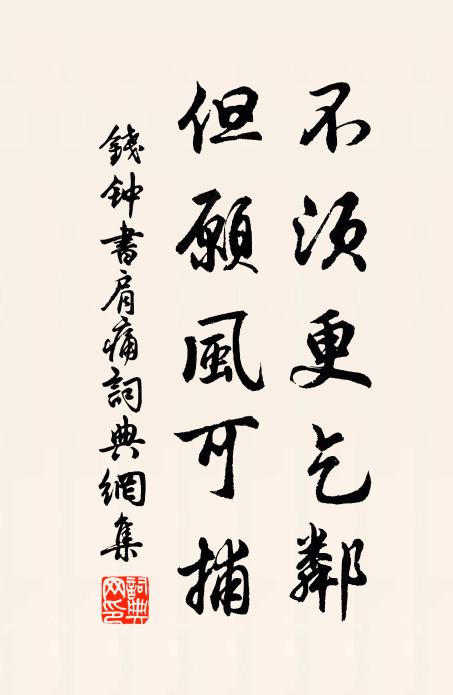 不須更乞鄰
但願風可捕
錢钟書肩痛詞典網集
詞典
网印